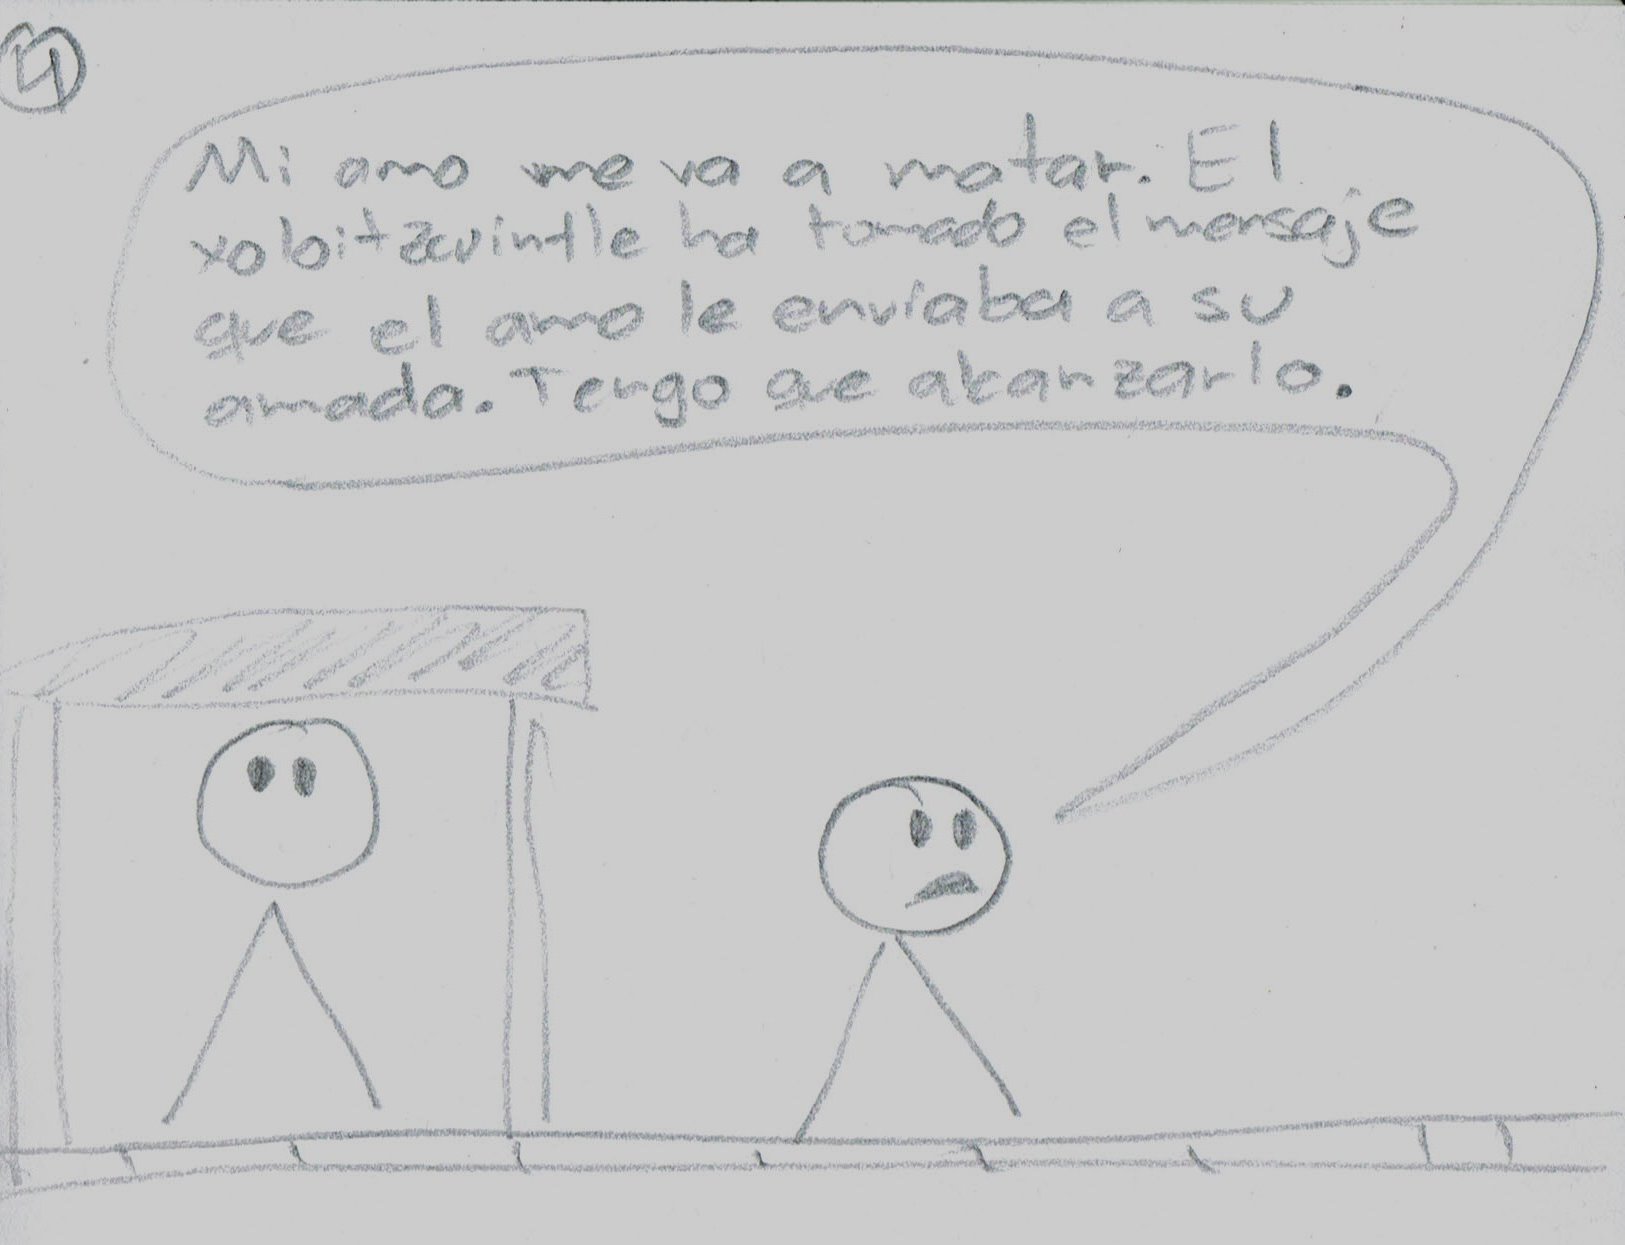 4
Mi amo me va a matar. El
xoloitzcuintle ha tomado el mensaje
que el amo le enviaba a su
amada. Tengo que alcanzarlo.